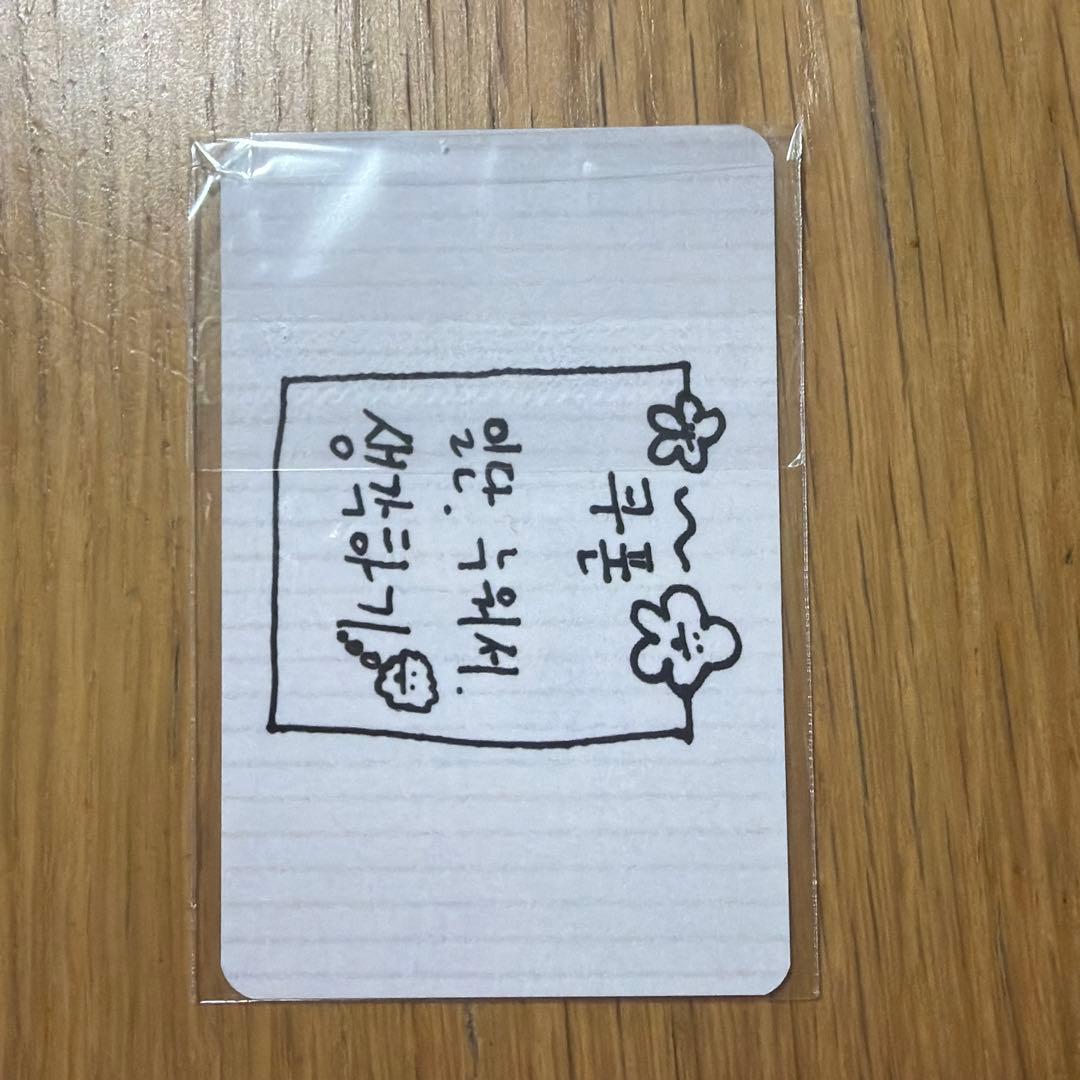 쿠폰
일단. 누워서.
생각하기